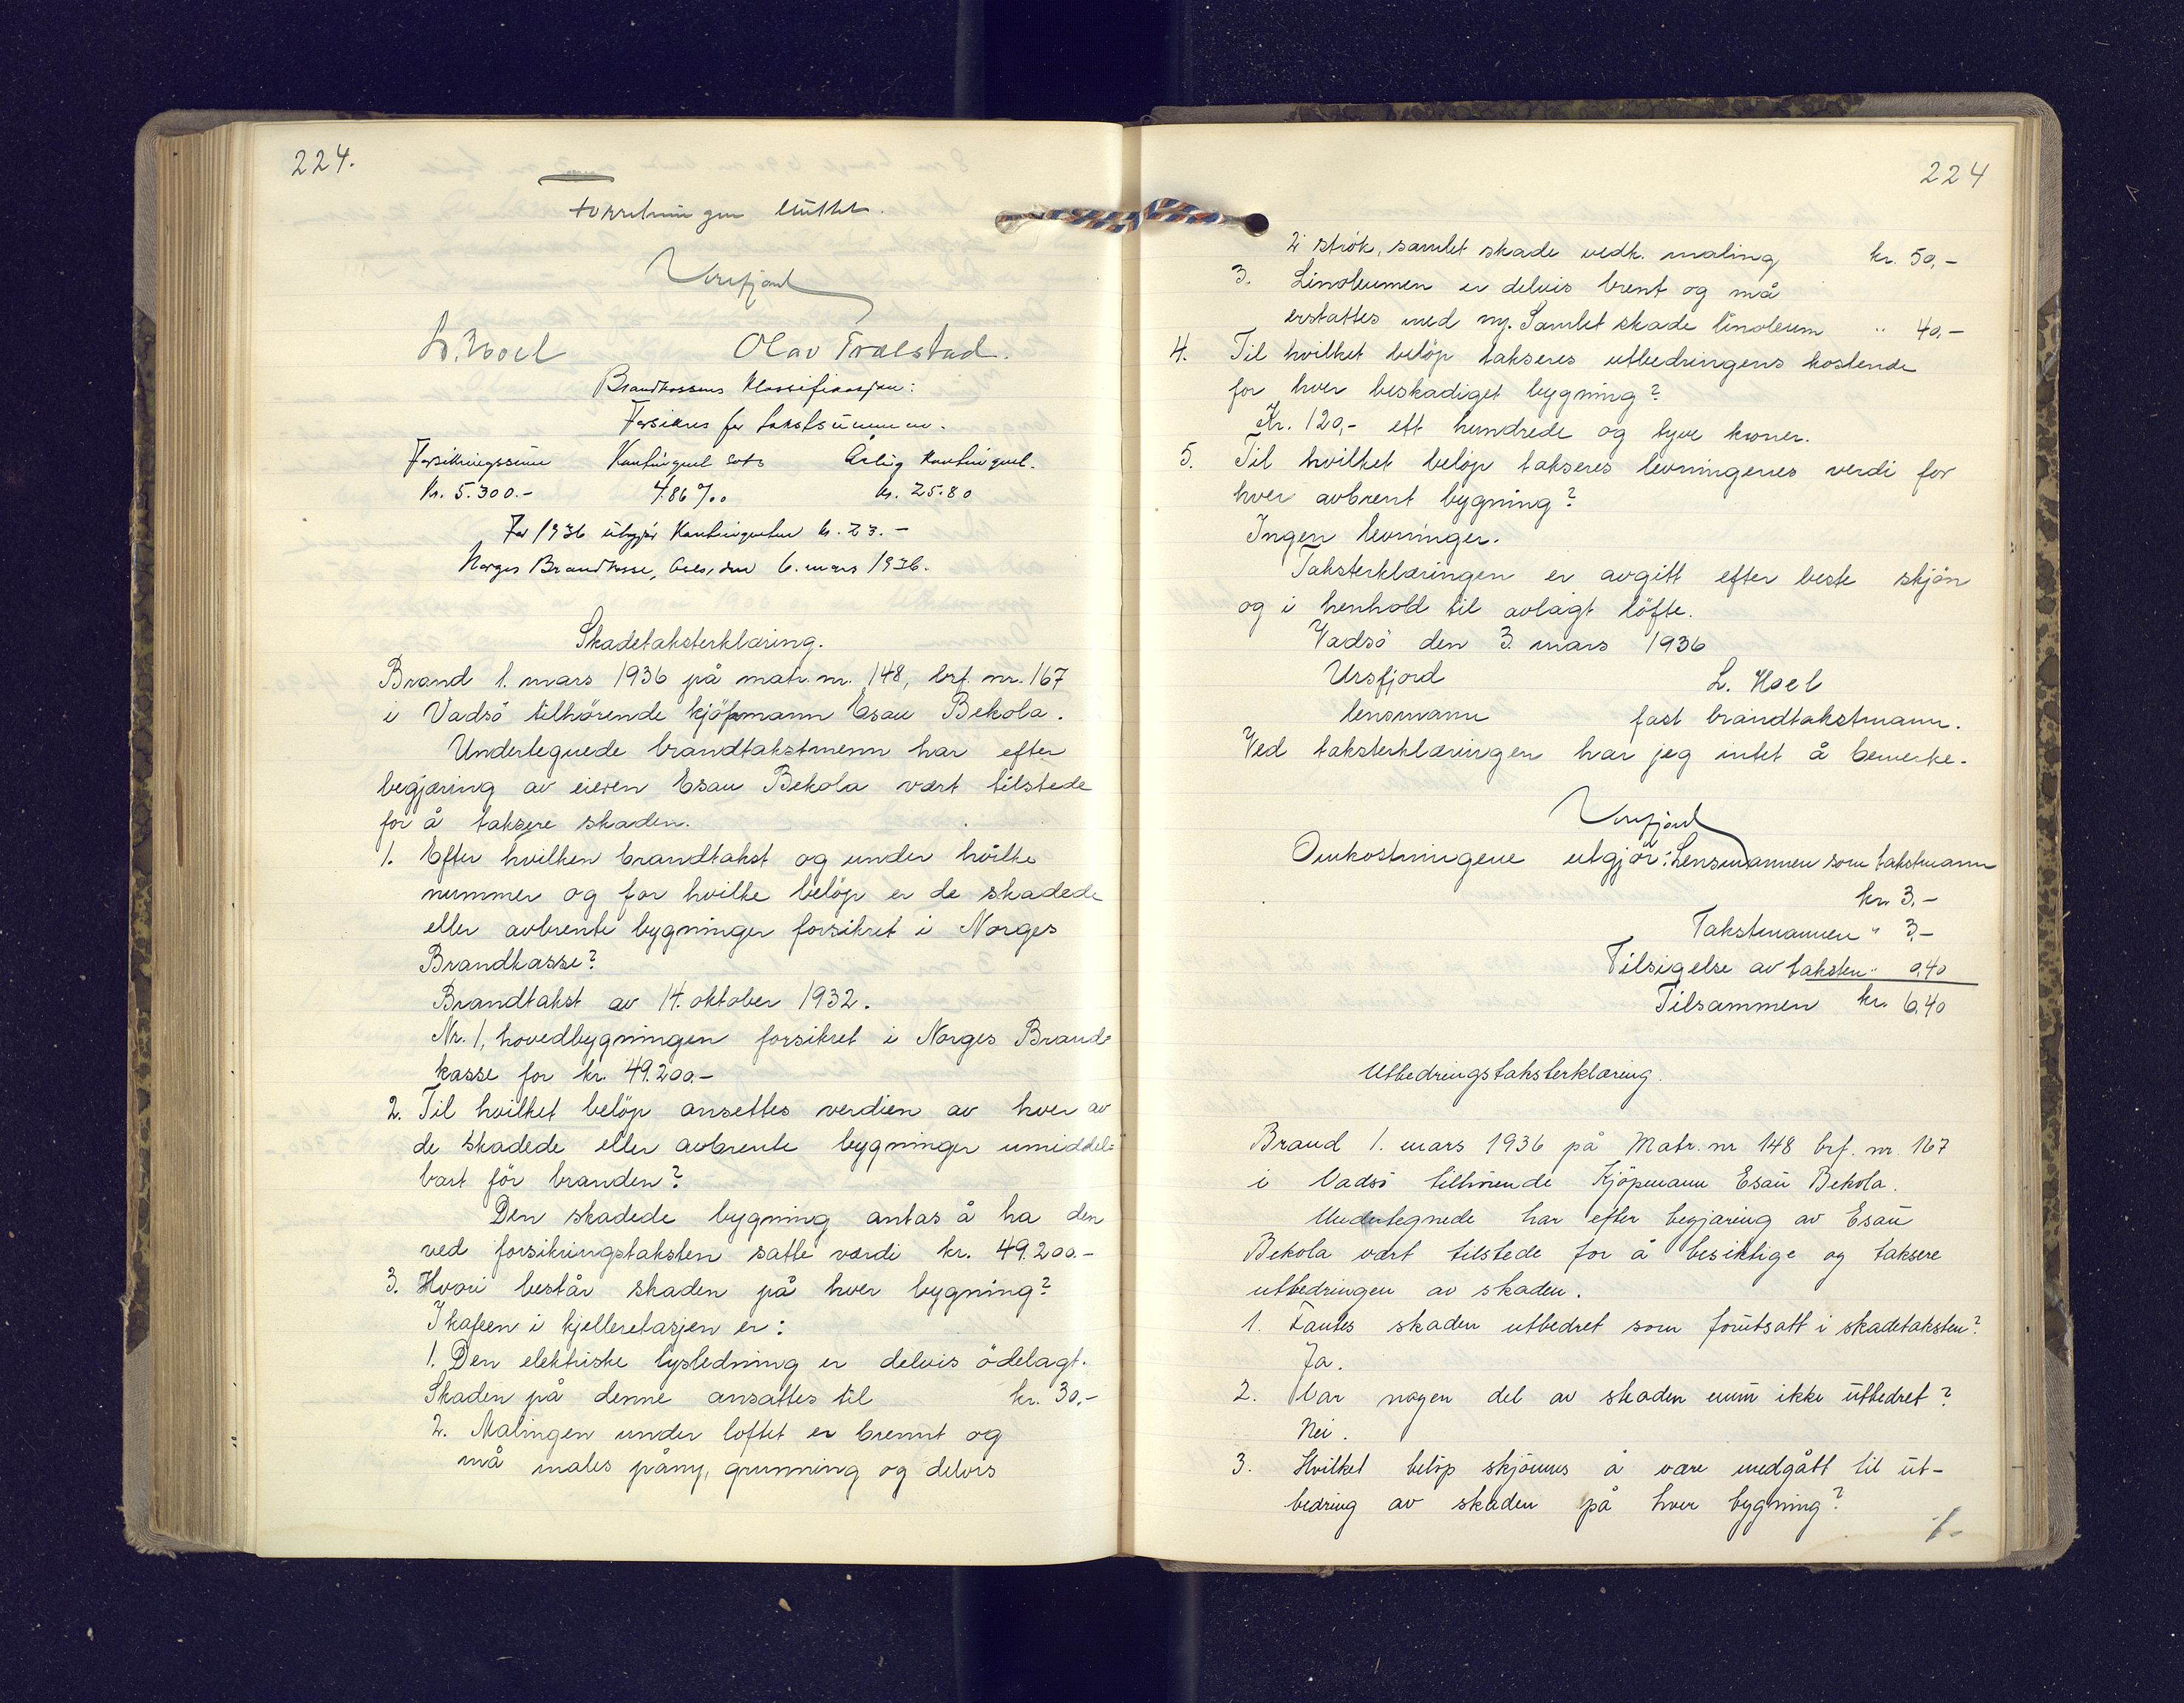 224.
Forretningen sluttet.
Ursfjord
L. Hoel Olav Trælstad.
Brandkassens klassifikasjon:
Forsikres for takstsummen.
Forsikringssum Kontingent sats Årlig kontingent.
Kr. 5.300.- 4.86 ‰ kr. 25.80
For 1936 utgjør kontingenten kr. 23.-
Norges Brandkasse, Oslo, den 6. mars 1936.
Skadetaksterklæring.
Brand 1. mars 1936 på matr. nr. 148, brf. nr. 167
i Vadsö tilhörende kjöpmann Esau Bekola.
Undertegnede brandtakstmenn har efter
begjæring av eieren Esau Bekola vært tilstede
for å taksere skaden.
1. Efter hvilken brandtakst og under hvilke
nummer og for hvilke belöp er de skadede
eller avbrente bygninger forsikret i Norges
Brandkasse?
Brandtakst av 14. oktober 1932.
Nr. 1, hovedbygningen forsikret i Norges Brand-
kasse for kr. 49.200.-
2. Til hvilket belöp ansettes verdien av hver av
de skadede eller avbrente bygninger umiddel-
bart för branden?
Den skadede bygning antas å ha den
ved forsikringstaksten satte værdi kr. 49.200.-
3. Hvori består skaden på hver bygning?
I kafeen i kjelleretasjen er:
1. Den elektriske lysledning er delvis ödelagt.
Skaden på denne ansattes til kr. 30,-
2. Malingen under loftet er brennt og
må males påny, grunning og delvis
224
2 strök, samlet skade vedk. maling kr. 50,-
3. Linoleumen er delvis brent og må
erstattes med ny. Samlet skade linoleum " 40,-
4. Til hvilket belöp takseres utbedringens kostende
for hver beskadiget bygning?
Kr. 120,- ett hundrede og tyve kroner.
5. Til hvilket belöp takseres levningenes verdi for
hver avbrent bygning?
Ingen levninger.
Taksterklæringen er avgitt efter beste skjön
og i henhold til avlagt löfte.
Vadsö den 3. mars 1936
Ursfjord L. Hoel
lensmann fast brandtakstmann.
Ved taksterklæringen har jeg intet å bemerke.
Ursfjord
Omkostningene utgjör: Lensmannen som takstmann
kr. 3.-
Takstmannen " 3,-
Tilsigelse av taksten " 0,40
Tilsammen kr. 6,40
Utbedringstaksterklæring.
Brand 1. mars 1936 på Matr. nr 148 brf. nr. 167
i Vadsö tilhörende Kjöpmann Esau Bekola.
Undertegnede har efter begjæring av Esau
Bekola vært tilstede for å besiktige og taksere
utbedringen av skaden.
1. Fantes skaden utbedret som forutsatt i skadetaksten?
Ja.
2. Var nogen del av skaden ennu ikke utbedret?
Nei.
3. Hvilket belöp skjönnes å være medgått til ut-
bedring av skaden på hver bygning?